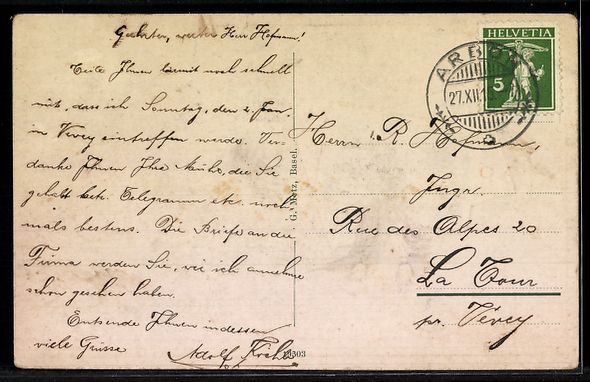 Geehrter, werter Herr Hofmann!
Teile Ihnen hiermit noch schnell
mit, dass ich Sonntag, den 2. Jan.
in Vevey eintreffen werde. Ver-
danke Ihnen Ihre Mühe, die Sie
gehabt betr. Telegramm etc. noch-
mals bestens. Die Briefe an die
Firma werden Sie, wie ich annehme
schon gesehen haben.
Entsende Ihnen indessen
viele Grüsse
Adolf
G. Metz, Basel.
HELVETIA
5
ARBON
27.XII.
Herrn R. Hofmann,
Ingr.
Rue des Alpes 20
La Tour
pr. Vevey